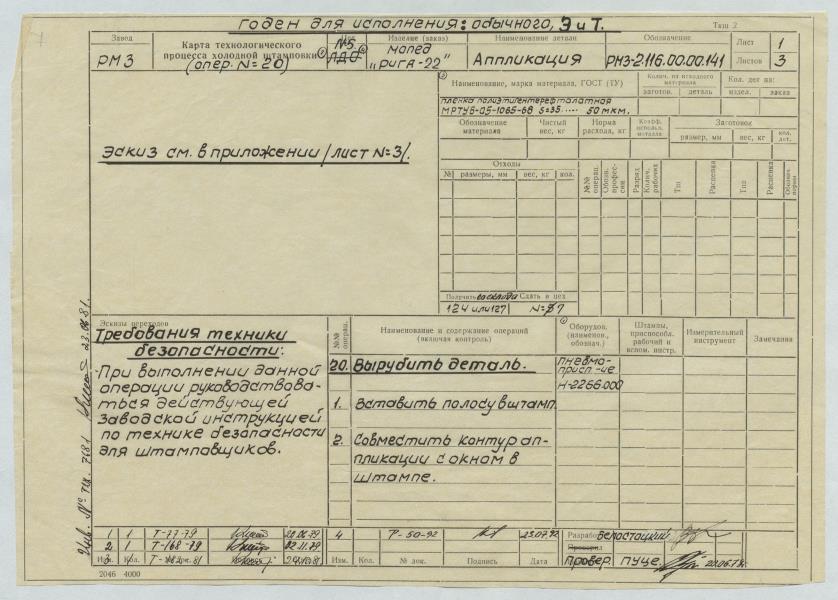 годен для исполнения: обычного, Э и Т.
Тши 2
Завод
РМЗ
Карта технологического
процесса холодной штамповки
(опер. №20)
Цех
№5
Изделие (заказ)
мопед
„Рига-22"
Наименование детали
Аппликация
Обозначение
РМЗ-2.116.00.00.141
Лист 1
Листов 3
Наименование, марка материала, ГОСТ (ТУ)
Колич. из исходного материала
Кол. дет на:
заготов. деталь издел. заказ
пленка полиэтилентерефталатная
МРТУ6-05-1065-68 S=35.... 50 мкм.
Обозначение материала
Чистый вес, кг
Норма расхода, кг
Коэфф. использ. металла
Заготовок
размер, мм вес, кг кол. дет.
Эскиз см. в приложении /лист №3/.
Отходы
№ размеры, мм вес, кг кол.
№№ операц.
Обозн. профессии
Разряд
Колич. рабочих
Тш
Расценка
Тш
Расценка
Получить со склада Сдать в цех
124 или 127 №7
Эскизы переходов
Требования техники
безопасности:
При выполнении данной
операции руководствова-
ться действующей
заводской инструкцией
по технике безопасности
для штамповщиков.
№№ операц.
Наименование и содержание операций
(включая контроль)
Оборудов. (наименов., обознач.)
Штампы, приспособл. рабочий и вспом. инстр.
Измерительный инструмент
Замечания
20. Вырубить деталь.
пневмо-
присп-ие
Н-2266.000
1. Вставить полосу в штамп.
2. Совместить контур ап-
пликации с окном в
штампе.
Инв. № тех. 7181 23.06.81.
1 1 Т-77-79 20.06.79
2 1 Т-168-79 02.11.79
4 Р-50-92 23.07.92
Изм. Кол. № док. Подпись Дата
Разраб. Белостоцкий
Провер. Пуце
2046 4000